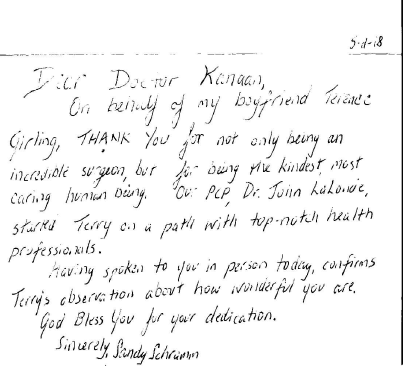 5-2-18
Dear Doctor Kanaan,
On behalf of my boyfriend Terence
Girling, THANK YOU for not only being an
incredible surgeon, but for being the kindest, most
caring human being. Our PCP, Dr. John LaLonde,
started Terry on a path with top-notch health
professionals.
Having spoken to you in person today, confirms
Terry's observation about how wonderful you are.
God Bless You for your dedication.
Sincerely, Sandy Schramm